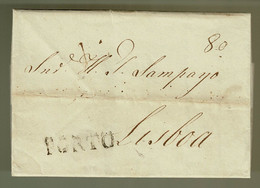 80
Snr H. J. Sampayo
PORTO
Lisboa